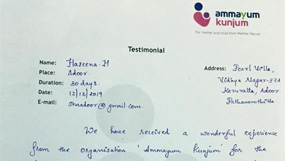 ammayum
kunjum
Testimonial
Name: Haseena H
Place: Adoor
Duration: 30 days.
Date: 12/12/2019
E-mail: @gmail.com
Address: Pearl Villa,
Vidhya Nagar-
Karuvatta, Adoor
Pathanamthitta
We have received a wonderful experience
from the organization 'Ammayum Kunjum' for the